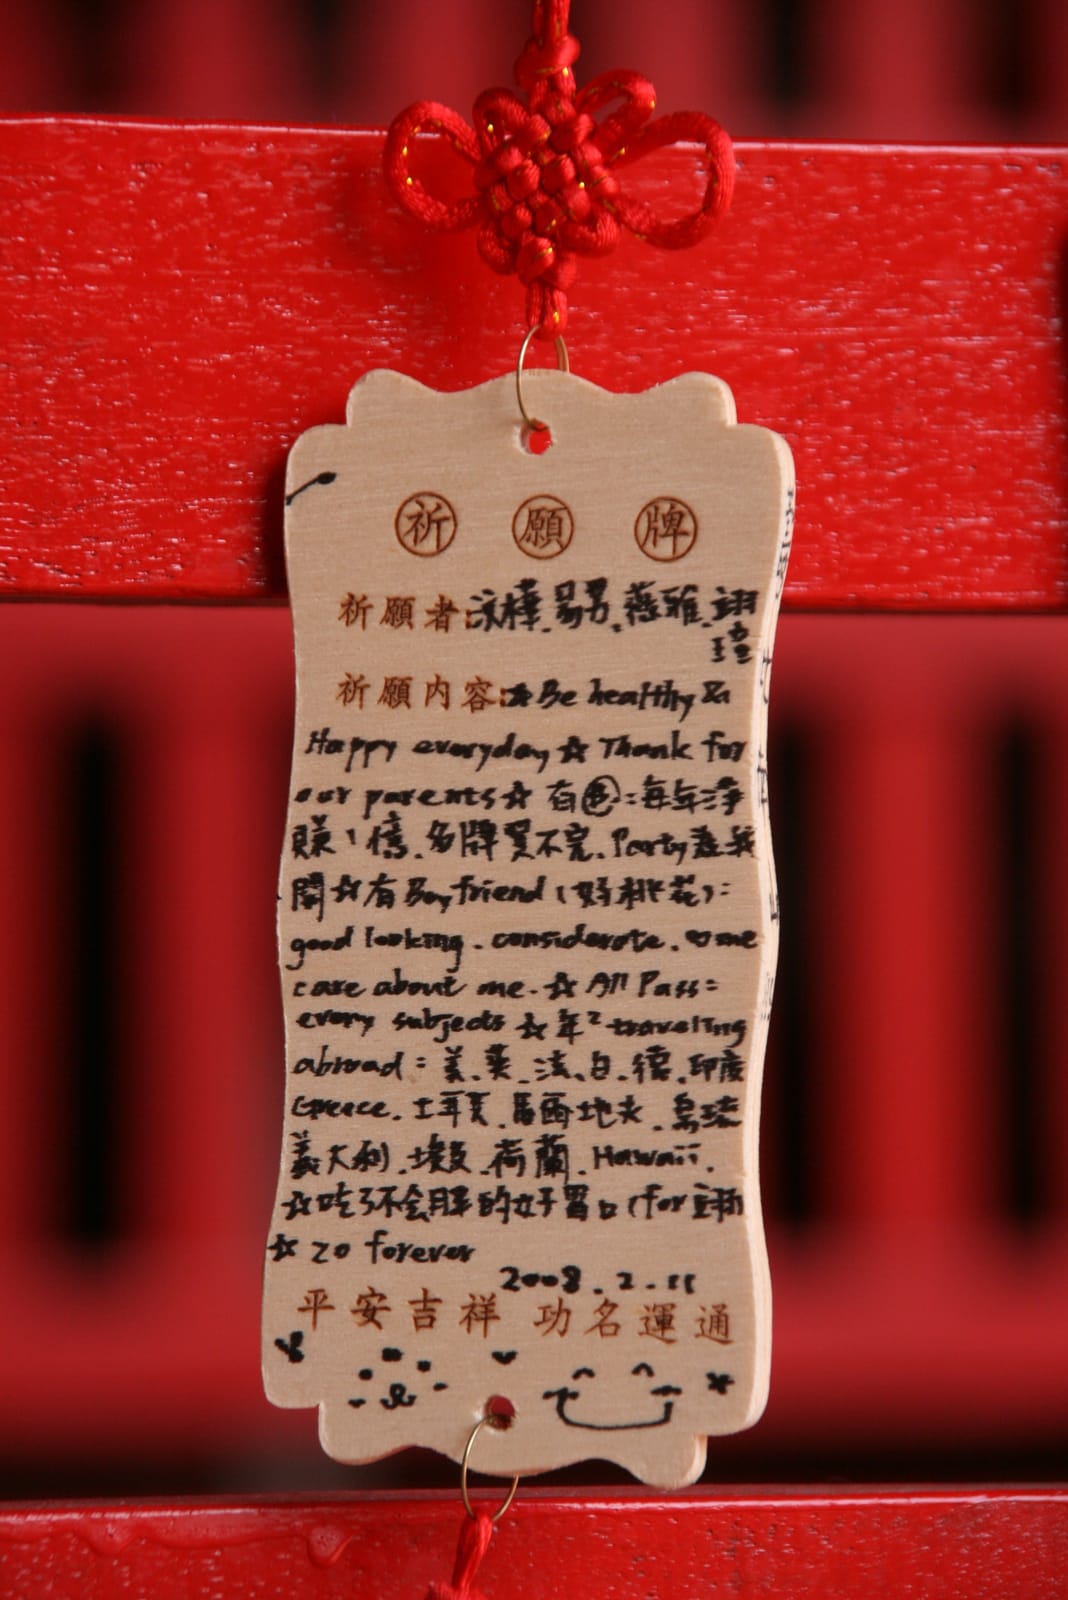 祈 願 牌
祈願者:樺.易男.燕雅.翊
瑄
祈願内容:☆Be healthy &
Happy everyday☆Thank for
our parents☆ 有色:每年淨
賺1億.多牌買不完.Party趕我
開☆有Boyfriend(好桃花):
good looking.considerate.♡me
care about me.☆All Pass:
every subjects☆年²traveling
abroad:美.英.法.白.德.印度
Greece.土耳其.馬爾地夫.烏
義大利.埃及.荷蘭.Hawaii.
☆吃了不会胖的好胃口(for 翊
☆20 forever
2008.2.11
平安吉祥 功名運通